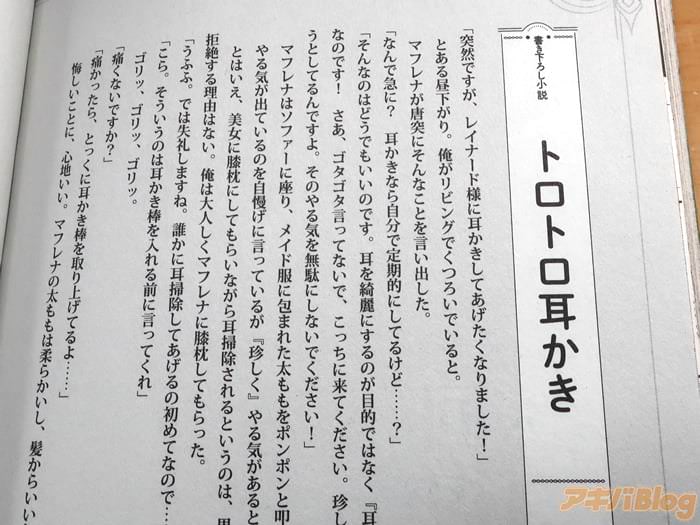 書き下ろし小説
トロトロ耳かき
「突然ですが、レイナード様に耳かきしてあげたくなりました！」
とある昼下がり。俺がリビングでくつろいでいると。
マフレナが唐突にそんなことを言い出した。
「なんで急に？　耳かきなら自分で定期的にしてるけど……？」
「そんなのはどうでもいいのです。耳を綺麗にするのが目的ではなく『耳
なのです！　さあ、ゴタゴタ言ってないで、こっちに来てください。珍し
うとしてるんですよ。そのやる気を無駄にしないでください！」
マフレナはソファーに座り、メイド服に包まれた太ももをポンポンと叩
やる気が出ているのを自慢げに言っているが『珍しく』やる気があると
とはいえ、美女に膝枕にしてもらいながら耳掃除されるというのは、男
拒絶する理由はない。俺は大人しくマフレナに膝枕してもらった。
「うふふ。では失礼しますね。誰かに耳掃除してあげるの初めてなので…
「こら。そういうのは耳かき棒を入れる前に言ってくれ」
ゴリッ、ゴリッ、ゴリッ。
「痛くないですか？」
「痛かったら、とっくに耳かき棒を取り上げてるよ……」
悔しいことに、心地いい。マフレナの太ももは柔らかいし、髪からいい
アキバBlog